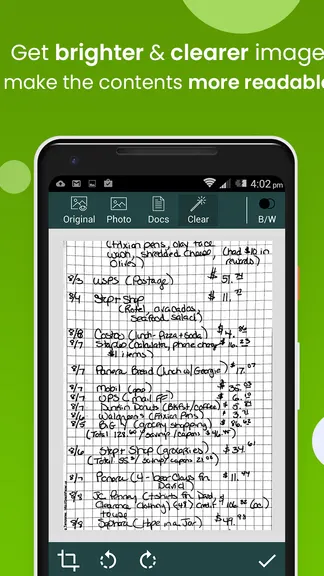 Get brighter & clearer image
make the contents more readable
4:02 pm
Original
Photo
Docs
Clear
B/W
(Frixion pens, olay face
wash, shredded cheese, (had $10 in
Olives) rewards)
8/3 USPS (Postage) $ 51.
8/4 Stop & Shop $ 11.
(Rotel, avocados,
seafood salad)
8/8 Costco (lunch - Pizza + Soda) $ 4.
8/7 Staples (calculator, phone charger $ 16.
$1 items)
8/7 Panera Bread (lunch w/Georgie) $ 17.07
8/7 Mobil (gas) $ 35.
8/7 UPS (mail FF) $
8/7 Dunkin Donuts (BKFST/coffee) $
8/6 Walgreens (Frixion Pens) $ 3.
8/5 BIG Y (grocery shopping) $ 86.
(Total 128. w/savings/coupons $46.)
8/6 Stop & Shop (groceries) $ 34.61
(Total 55. w/savings/coupons 21.)
8/7 Panera (4 - Bear Claws for $ 11.
David)
8/8 JC Penney (t shirts for Dad,
Clearance clothing)
8/8 Sephora (Hope in a Jar) $ 49.